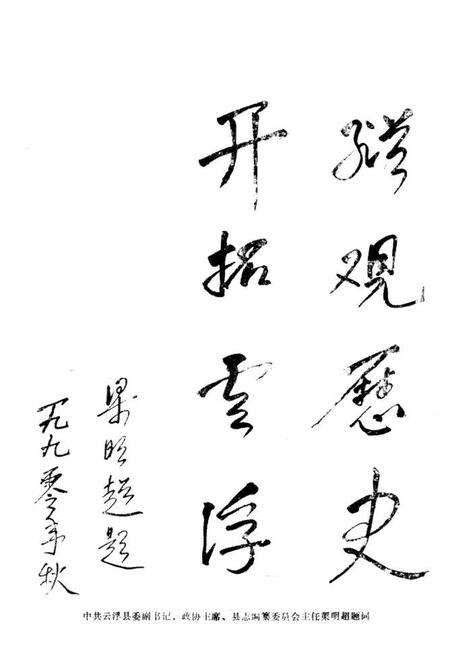 縱观歷史
开拓雲浮
梁明超题
一九九零年秋
中共云浮县委副书记、政协主席、县志编纂委员会主任梁明超题词